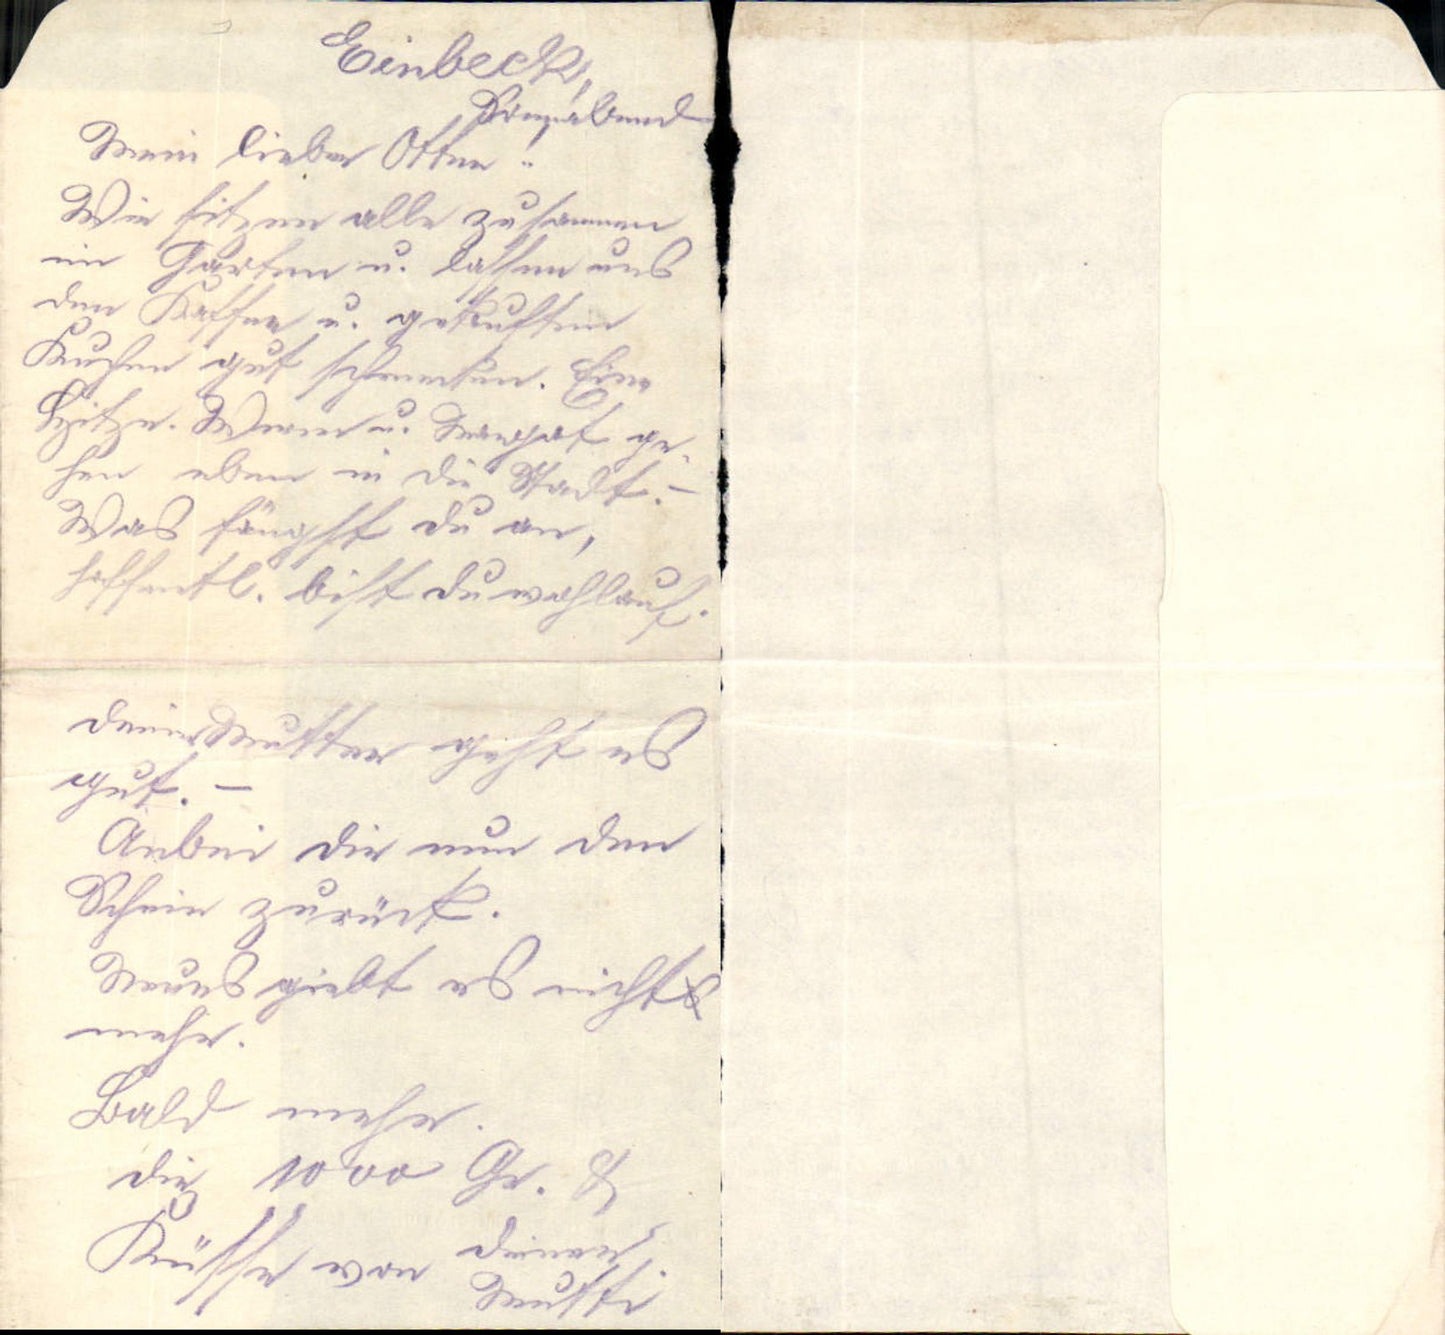 Einbeck,
Sonnabend
Mein lieber Otten!
Wir sitzen alle zusammen
im Garten u. lassen uns
den Kaffee u. gekauften
Kuchen gut schmecken. Eine
Hitze. Werner u. Margot ge-
hen eben in die Stadt. –
Was fängst du an,
hoffentl. bist du wohlauf.
Deiner Mutter geht es
gut. –
Anbei dir nun den
Schein zurück.
Neues giebt es nicht
mehr.
Bald mehr.
Dir 1000 Gr. &
Küsse von Deiner
Mutti